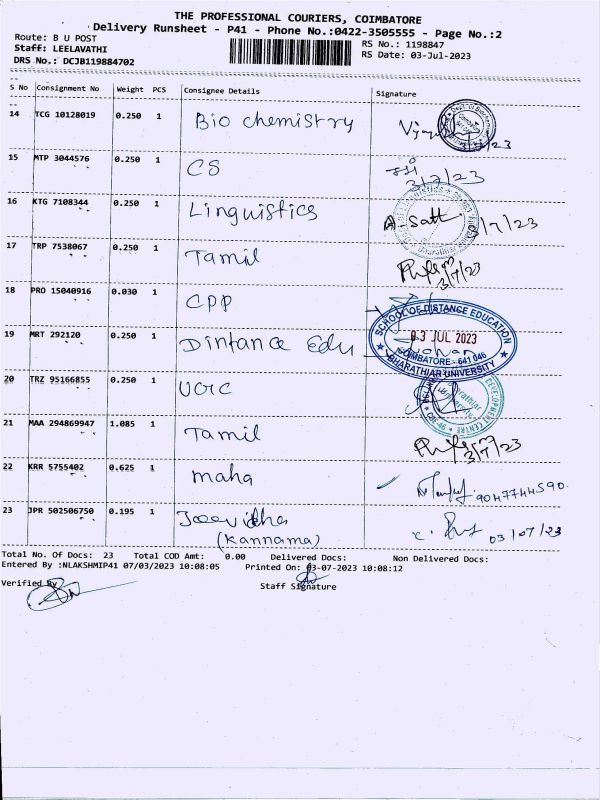 THE PROFESSIONAL COURIERS, COIMBATORE
Delivery Runsheet - P41 - Phone No.:0422-3505555 - Page No.:2
Route: B U POST
RS No.: 1198847
Staff: LEELAVATHI
RS Date: 03-Jul-2023
DRS No.: DCJB119884702
S No Consignment No Weight PCS Consignee Details Signature
14 TCG 10128019 0.250 1 Bio chemistry
15 MTP 3044576 0.250 1 CS 3/7/23
16 KTG 7108344 0.250 1 Linguistics
17 TRP 7538067 0.250 1 Tamil 3/7/23
18 PRO 15040916 0.030 1 CPP
19 MRT 292120 0.250 1 Distance Edu
SCHOOL OF DISTANCE EDUCATION
03 JUL 2023
COIMBATORE - 641 046
BHARATHIAR UNIVERSITY
20 TRZ 95166855 0.250 1
21 MAA 294869947 1.085 1 Tamil 3/7/23
22 KRR 5755402 0.625 1 maha 9047744590.
23 JPR 502506750 0.195 1 03/07/23
(Kannama)
Total No. Of Docs: 23 Total COD Amt: 0.00 Delivered Docs: Non Delivered Docs:
Entered By :NLAKSHMIP41 07/03/2023 10:08:05 Printed On: 03-07-2023 10:08:12
Verified By
Staff Signature